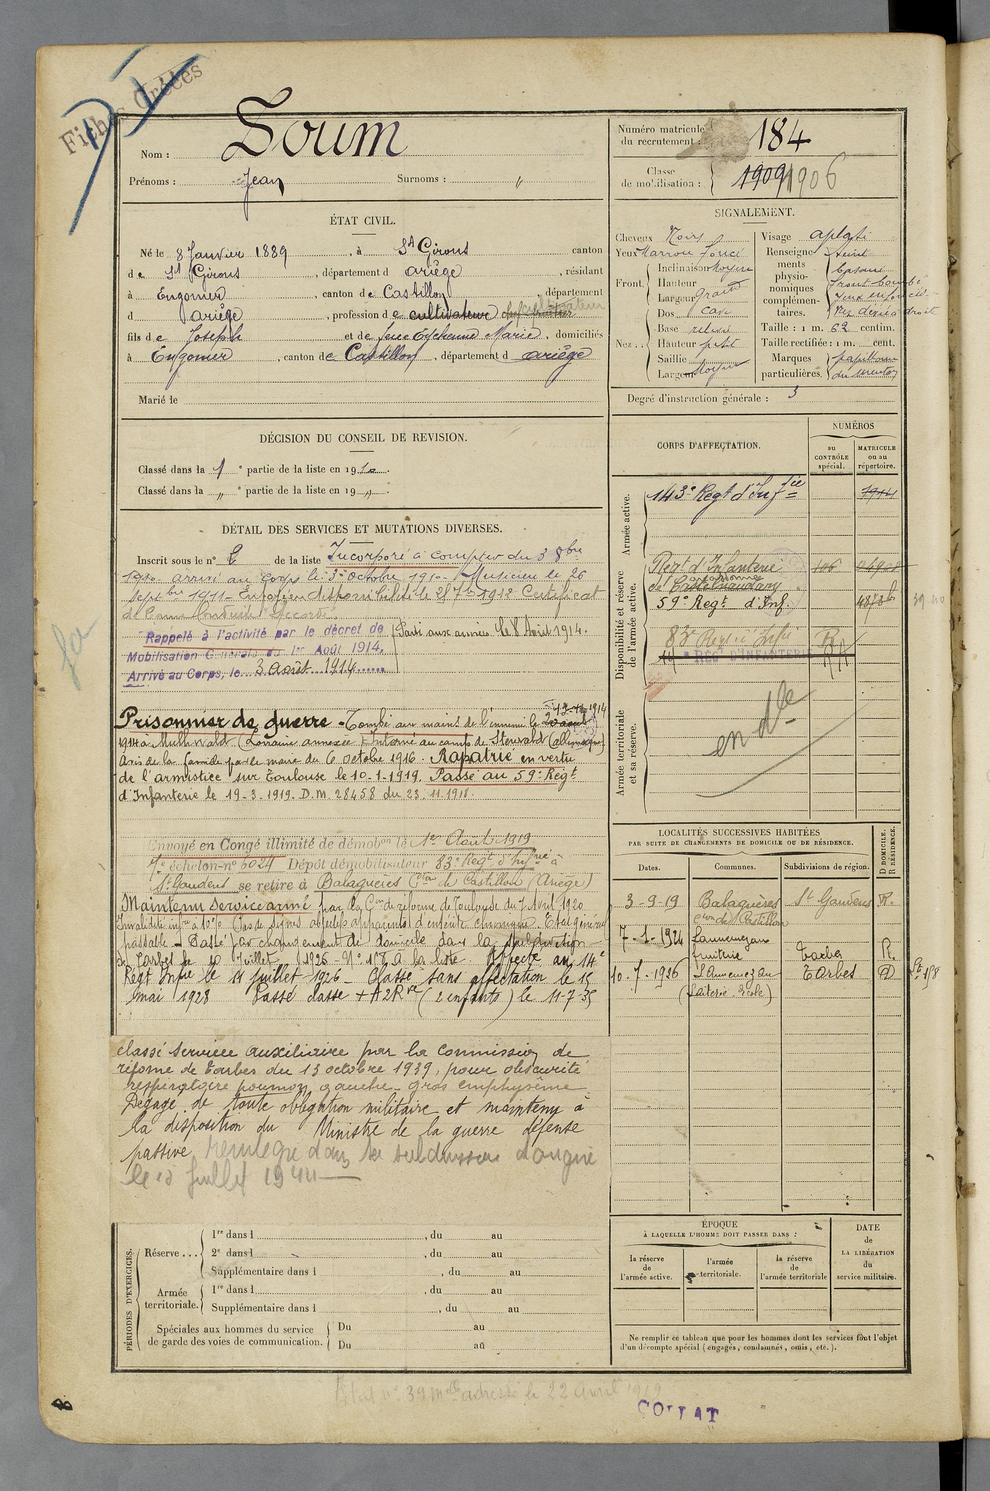 Fiches Créées
Nom : Soum
Prénoms : Jean Surnoms : "
ÉTAT CIVIL.
Né le 8 Janvier 1889, à St Girons canton
de St Girons, département d ariège, résidant
à Engomer, canton de Castillon, département
d ariège, profession de cultivateur
fils de Joseph et de feue Eychenne Marie, domiciliés
à Engomer, canton de Castillon, département d ariège
Marié le
DÉCISION DU CONSEIL DE REVISION.
Classé dans la 1e partie de la liste en 1910.
Classé dans la " e partie de la liste en 19 "
DÉTAIL DES SERVICES ET MUTATIONS DIVERSES.
Inscrit sous le n° de la liste Incorporé à compter du 3 8bre
1910 arrivé au corps le 3 octobre 1910. Musicien le 26
septbre 1911. Envoyé en disponibilité le 27 7bre 1912 Certificat
de Bonne Conduite "Accordé"
Rappelé à l'activité par le décret de
Mobilisation Générale du 1er Août 1914.
Arrivé au Corps, le 3 août 1914
Parti aux armées le 8 Avril 1914.
Prisonnier de guerre - Tombé aux mains de l'ennemi le 20 août
1914 à (Lorraine annexée Interné au camp de (allemagne)
Avis de la famille par le maire du 6 Octobre 1916. Rapatrié en vertu
de l'armistice sur Toulouse le 10-1-1919. Passé au 59e Régt
d'Infanterie le 19-3-1919. D.M. 28458 du 23.11.1918.
Envoyé en Congé illimité de démobon le 1er Août 1919
7e échelon n° 5024 Dépôt démobilisateur 83e Regt d'Infrie à
St Gaudens se retire à Balaguères Cton de Castillon (Ariège)
Maintenu service armé par la Con de réforme de Toulouse du 7 Avril 1920
Invalidité infre à 10% Pas de signes objectifs apparents d'entérite chronique. Etat général
passable - Passé par changement de domicile dans la subdivision
de Tarbes le 10 Juillet 1926 - N° 176 à la liste. Affecté au 14e
Régt Infie le 11 Juillet 1926 - Classé sans affectation le 15
mai 1928 Passé classe + A2Rve (2 enfants) le 11-7-35
classé service auxiliaire par la commission de
réforme de Tarbes du 13 octobre 1939, pour obscurité
respiratoire poumon gauche - gros emphysème
Dégagé de toute obligation militaire et maintenu à
la disposition du Ministre de la guerre défense
passive
le 15 Juillet 1944
PÉRIODES D'EXERCICES.
Réserve . . .
1re dans l , du au
2e dans l , du au
Supplémentaire dans l , du au
Armée territoriale.
1re dans l , du au
Supplémentaire dans l , du au
Spéciales aux hommes du service
de garde des voies de communication.
Du au
Du au
Numéro matricule
du recrutement : 184
Classe
de mobilisation : 1909 1906
SIGNALEMENT.
Cheveux Noirs
Yeux Marron foncé
Front.
Inclinaison Moyen
Hauteur
Largeur grand
Nez . . .
Dos cave
Base relevé
Hauteur petit
Saillie
Largeur Moyen
Visage aplati
Renseignements
physionomiques
complémentaires.
Front bombé
Nez dévié à droite
Taille : 1 m. 62 centim.
Taille rectifiée : 1 m. cent.
Marques
particulières. papillome
du menton
Degré d'instruction générale : 3
CORPS D'AFFECTATION.
NUMÉROS
au
CONTRÔLE
spécial.
MATRICULE
ou au
répertoire.
Armée active.
143e Regt d'Infie
Disponibilité et réserve
de l'armée active.
Regt d'Infanterie
de Carcassonne
Castelnaudary
59e Regt d'Inf.
83e Regt d'Infie
14e REGt D'INFANTERIE
Armée territoriale
et sa réserve.
en dlle
LOCALITÉS SUCCESSIVES HABITÉES
PAR SUITE DE CHANGEMENTS DE DOMICILE OU DE RÉSIDENCE.
Dates. Communes. Subdivisions de région. D DOMICILE. R RÉSIDENCE.
3-9-19 Balaguères St Gaudens R.
cton de Castillon
7-1-1924 Lannemezan
fruiterie Tarbes R.
10-7-1926 Lannemezan Tarbes D
(laiterie école)
ÉPOQUE
À LAQUELLE L'HOMME DOIT PASSER DANS :
la réserve
de
l'armée active.
l'armée
territoriale.
la réserve
de
l'armée territoriale
DATE
de
LA LIBÉRATION
du
service militaire.
Ne remplir ce tableau que pour les hommes dont les services font l'objet
d'un décompte spécial (engagés, condamnés, omis, etc.).
COLLAT